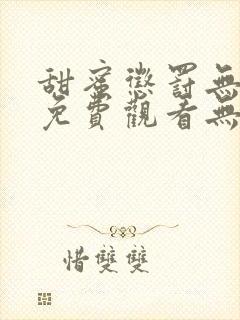 甜蜜懲罰無
免費觀看無
惜雙雙